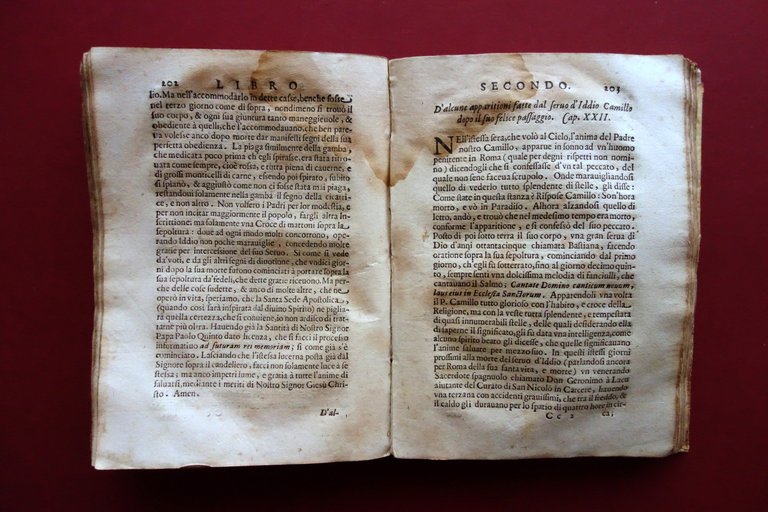 202 LIBRO
lio. Ma nell'accommodarlo in dette casse, benche fosse
nel terzo giorno come di sopra, nondimeno si trouò il
suo corpo, & ogni sua giuntura tanto maneggieuole, &
obediente à quelli, che l'accommodauano, che ben pare-
ua volesse anco dopo morte dar manifesti segni della sua
perfetta obedienza. La piaga similmente della gamba,
che medicata poco prima ch'egli spirasse, era stata ritro-
uata come sempre, cioè rossa, e tutta piena di cauerne, e
di grossi monticelli di carne, essendo poi spirato, subito
si spianò, & aggiustò come non ci fosse stata mai piaga,
restandoui solamente nella gamba il segno della cicatri-
ce, e non altro. Non volsero i Padri per lor modestia, e
per non incitar maggiormente il popolo, fargli altra In-
scrittione: ma solamente vna Croce di mattoni sopra la
sepoltura: doue ad ogni modo molti concorrono, ope-
rando Iddio non poche marauiglie, concedendo molte
gratie per intercessione del suo Seruo. Si come si vede
da'voti, e da gli altri segni di diuotione, che vndici gior-
ni dopo la sua morte furono cominciati à portare sopra la
sua sepoltura da'fedeli, che dette gratie riceueuano. Ma per-
che delle cose sudette, & anco di molte altre, che ne
operò in vita, speriamo, che la Santa Sede Apostolica,
(quando così sarà inspirata dal diuino Spirito) ne piglia-
rà quella certezza, che si conuiene, io non ardisco di trattar-
te più oltra. Hauendo già la Santità di Nostro Signor
Papa Paolo Quinto dato licenza, che si facci il processo
informatiuo ad futuram rei memoriam; si come già s'è
cominciato. Lasciando che l'istessa lucerna posta già dal
Signore sopra il candeliero, facci non solamente luce à se
stessa; ma anco impetri lume, e gratia à tutte l'anime di
saluarsi, mediante i meriti di Nostro Signor Giesù Chri-
sto. Amen.
D'al-
SECONDO. 203
D'alcune apparitioni fatte dal seruo d'Iddio Camillo
dopo il suo felice passaggio. Cap. XXII.
NEll'istessa sera, che volò al Cielo, l'anima del Padre
nostro Camillo, apparue in sonno ad vn'huomo
penitente in Roma (quale per degni rispetti non nomi-
no) dicendogli che si confessasse d'vn tal peccato, del
quale non si ne faceua scrupolo. Onde marauigliandosi
quello di vederlo tutto splendente di stelle, gli disse:
Come state in questa stanza? Rispose Camillo: Son'hora
morto, e vò in Paradiso. Alhora alzandosi quello di
letto, andò, e trouò che nel medesimo tempo era morto,
conforme l'apparitione, e si confessò del suo peccato.
Posto di poi sotto terra il suo corpo, vna gran serua di
Dio d'anni ottantacinque chiamata Bastiana, facendo
oratione sopra la sua sepoltura, cominciando dal primo
giorno, ch'egli fu sotterrato, fino al giorno decimo quin-
to, sempre sentì vna dolcissima melodia di fanciulli, che
cantauano il Salmo; Cantate Domino canticum nouum,
laus eius in Ecclesia Sanctorum. Apparendoli vna volta
il P. Camillo tutto glorioso con l'habito, e croce della
Religione, ma con la veste tutta splendente, e tempestata
di quasi innumerabili stelle, delle quali desiderando ella
di saperne il significato, gli fu data vn'intelligenza, come
alcuno spirito beato gli dicesse, che quelle significauano
l'anime saluate per mezzo suo. In questi istessi giorni
prossimi alla morte del seruo d'Iddio (parlandosi ancora
per Roma della sua santa vita, e morte) vn venerando
Sacerdote spagnuolo chiamato Don Geronimo à Lacu
aiutante del Curato di San Nicolò in Carcere, hauendo
vna terzana con accidenti grauissimi, che trà il freddo, &
il caldo gli durauano per lo spatio di quattro hore in cir-
Cc 2 ca;